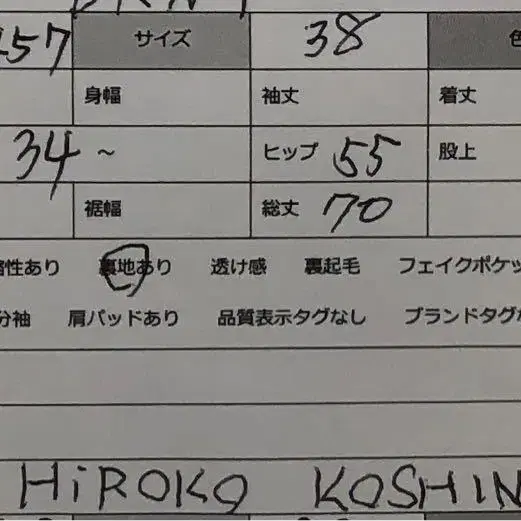 457 サイズ 38 色
身幅 袖丈 着丈
34 ~ ヒップ 55 股上
裾幅 総丈 70
性あり 裏地あり 透け感 裏起毛 フェイクポケッ
分袖 肩パッドあり 品質表示タグなし ブランドタグ
HiROKO KOSHIN